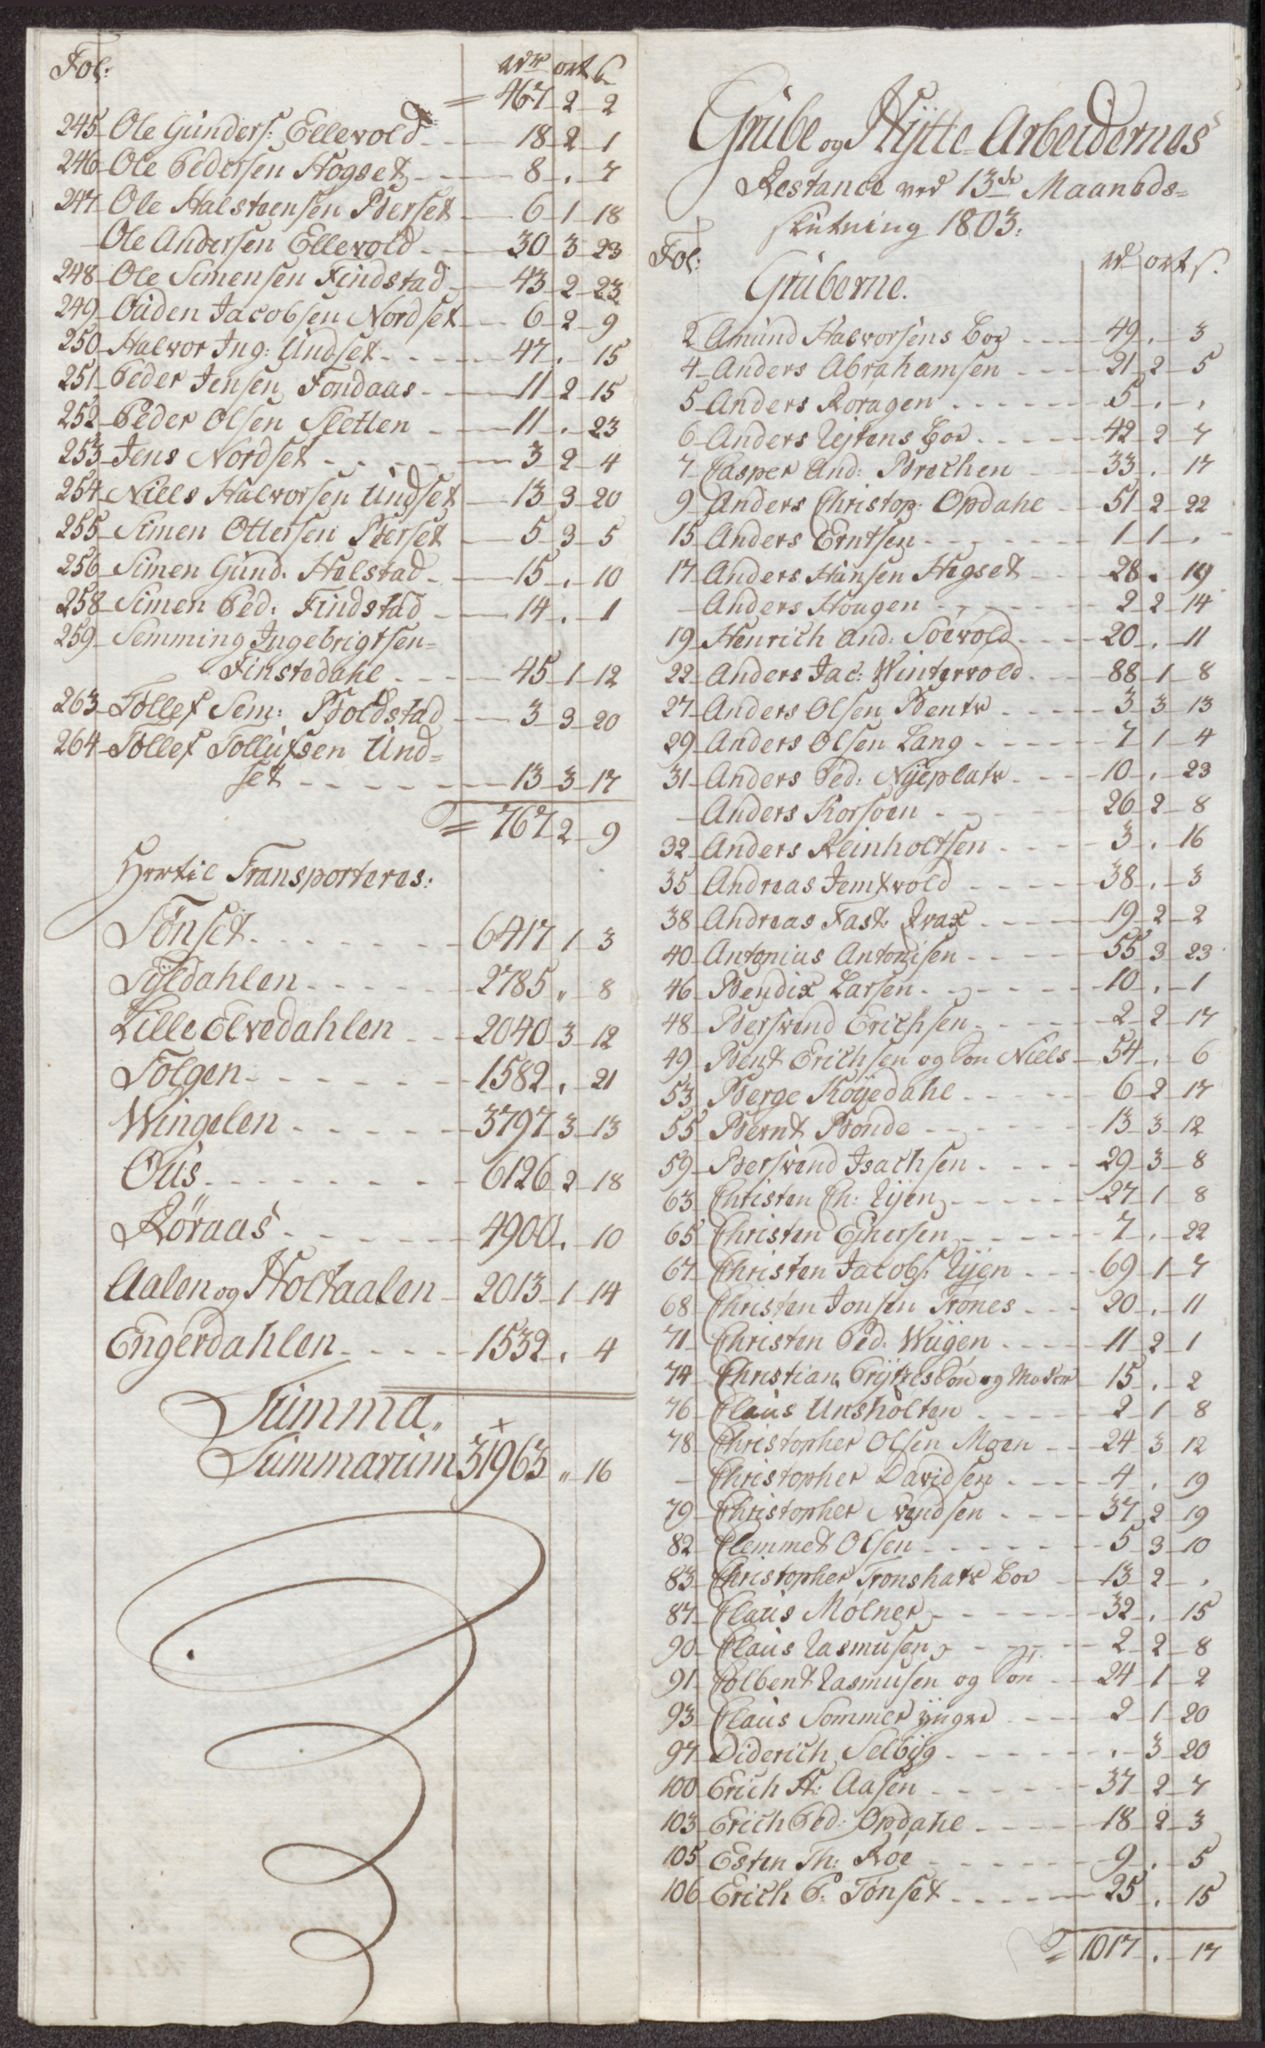 Fol: rdr ort s
= 467 2 2
245 Ole Gunders: Ellevold 18 2 1
246 Ole Pedersen Hogset 8 . 7
247 Ole Halstensen Berset 6 1 18
Ole Andersen Ellevold 30 3 23
248 Ole Simensen Findstad 43 2 23
249 Ouden Jacobsen Nordset 6 2 9
250 Halvor Ing: Undset 47 . 15
251 Peder Jensen Fondaas 11 2 15
252 Peder Olsen Sletten 11 . 23
253 Jens Nordset 3 2 4
254 Niels Halvorsen Undset 13 3 20
255 Simen Ottersen Berset 5 3 5
256 Simen Gund. Halstad 15 . 10
258 Simen Ped: Findstad 14 . 1
259 Semming Ingebrigtsen=
Finstadahl 45 1 12
263 Tollef Sem: Boldstad 3 3 20
264 Tollef Tollufsen Und=
set 13 3 17
= 767 2 9
Hertil Transporteres:
Tønset 6417 1 3
Tyldahlen 2785 " 8
Lille Elvedahlen 2040 3 12
Tolgen 1582 . 21
Wingelen 3797 3 13
Ous 6126 2 18
Røraas 4900 . 10
Aalen og Holtaalen 2013 1 14
Engerdahlen 1532 . 4
Summa
Summarum 31963 " 16
Grube og Hytte Arbeidernes
Restance ved 13de Maaneds=
slutning 1803.
Fol: rd ort s.
Gruberne.
2 Amund Halvorsens Eor 49 . 3
4 Anders Abrahamsen 21 2 5
5 Anders Roragen 5 . .
6 Anders Eor 42 2 7
7 Casper And: Brechen 33 . 17
9 Anders Christop: Opdahl 51 2 22
15 Anders Erntsen 1 1 .
17 Anders Hansen Hogset 28 . 19
Anders Hougen 2 2 14
19 Henrich And: Soevold 20 . 11
22 Anders Jac: Wintervold 88 1 8
27 Anders Olsen Bentz 3 3 13
29 Anders Olsen Lang 7 1 4
31 Anders Ped: Nyeplatz 10 . 23
Anders Korsoen 26 2 8
32 Anders Reinholtsen 3 . 16
35 Andreas Jemtvold 38 . 3
38 Andreas Fast Krax 19 2 2
40 Antonius Antonisen 55 3 23
46 Bendix Larsen 10 . 1
48 Bersvend Erichsen 2 2 17
49 Bent Erichsen og Søn Niels 54 . 6
53 Berge Køyedahl 6 2 17
55 Bernt Bonde 13 3 12
59 Bersvend Isachsen 29 3 8
63 Christen Ch: Eyen 27 1 8
65 Christen Ejhersen 7 . 22
67 Christen Jacobs: Eyen 69 1 7
68 Christen Jonsen Trønes 20 . 11
71 Christen Ped: Wiigen 11 2 1
74 Christian Prytzes Søn og Moder 15 . 2
76 Claus Unsholten 2 1 8
78 Christopher Olsen Moen 24 3 12
Christopher Davidsen 4 . 19
79 Christopher Svendsen 37 2 19
82 Clemmet Olsen 5 3 10
83 Christopher Tronshart Eor 13 2 .
87 Claus Mølner 32 . 15
90 Claus Rasmusen 2 2 8
91 Colbent Rasmusen og Søn 24 1 2
93 Claus Sommer yngre 2 1 20
97 Diderich Selbyg . 3 20
100 Erich H: Aasen 37 2 7
103 Erich Ped: Opdahl 18 2 3
105 Esten Th: Røe 9 . 5
106 Erich P: Tønset 25 . 15
= 1017 . 17